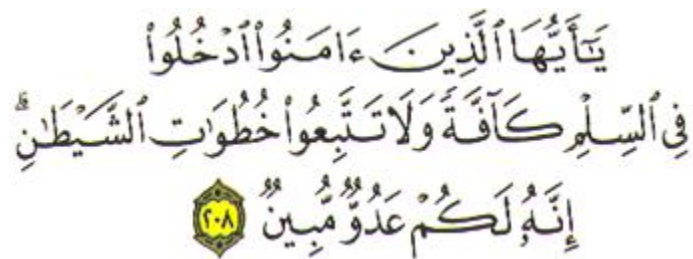 يَٰٓأَيُّهَا ٱلَّذِينَ ءَامَنُوا۟ ٱدْخُلُوا۟
فِى ٱلسِّلْمِ كَآفَّةً وَلَا تَتَّبِعُوا۟ خُطُوَٰتِ ٱلشَّيْطَٰنِ ۚ
إِنَّهُۥ لَكُمْ عَدُوٌّ مُّبِينٌ ٢٠٨